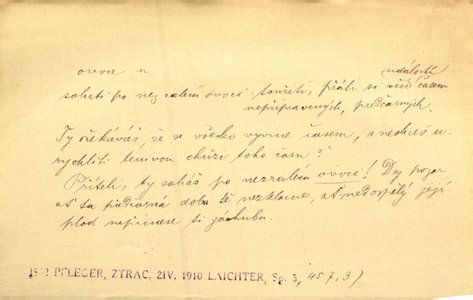 ovoce n
událostí
sahati po nezralém ovoci toužiti, přáti si před časem
nepřipravených, předčasných
Ty čekáváš, že se všecko vyvine časem, a nechceš u-
rychliti lenivou chůzi toho času?
Příteli, ty saháš po nezralém ovoci! Dej pozor
ať ta předčasná doba tě nezklame, ať nedospělý její
plod nepřinese ti záhubu.
1862 PFLEGER, ZTRAC. ŽIV. 1910 LAICHTER, Sp. 3, 457.3)